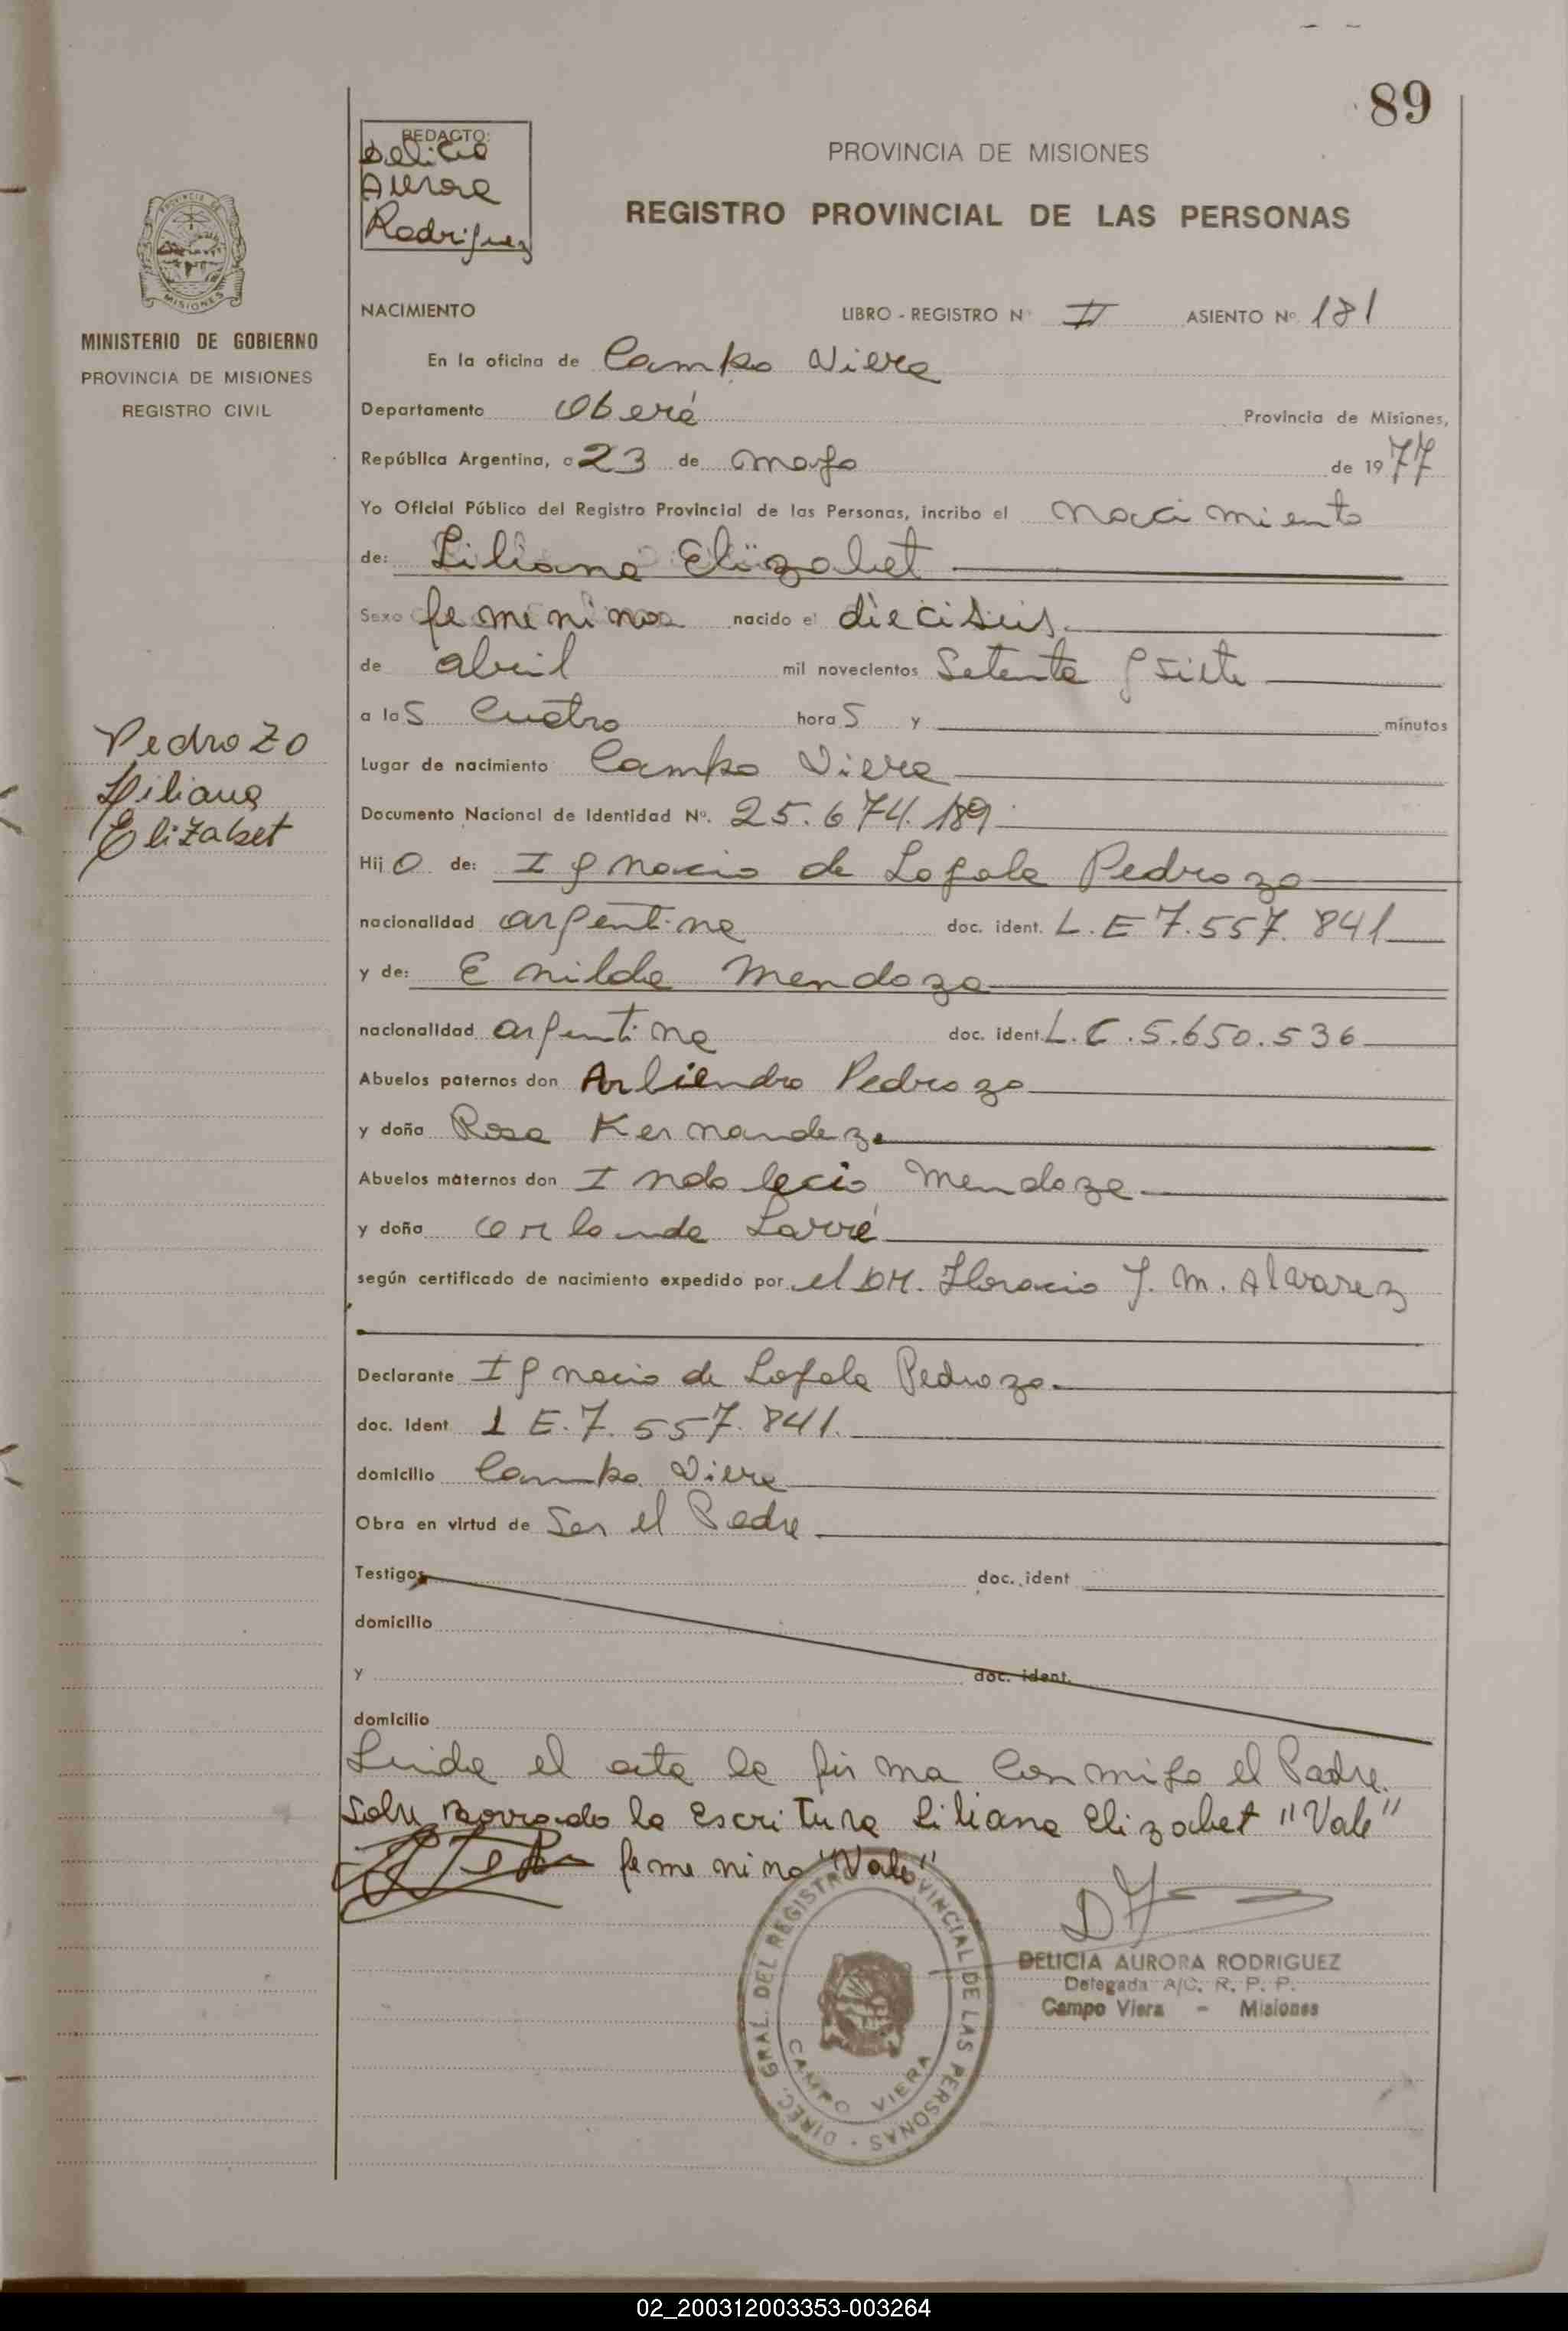 89
REDACTO:
Delicia
Aurora
Rodriguez
PROVINCIA DE MISIONES
REGISTRO PROVINCIAL DE LAS PERSONAS
PROVINCIA DE
MISIONES
MINISTERIO DE GOBIERNO
PROVINCIA DE MISIONES
REGISTRO CIVIL
NACIMIENTO LIBRO - REGISTRO N° II ASIENTO Nº 181
En la oficina de Campo Viera
Departamento Oberá Provincia de Misiones,
República Argentina, a 23 de mayo de 1977
Yo Oficial Público del Registro Provincial de las Personas, incribo el nacimiento
de: Liliana Elizabet
Sexo femenino nacido el dieciseis
de abril mil novecientos Setenta y siete
a las cuatro horas y minutos
Lugar de nacimiento Campo Viera
Documento Nacional de Identidad Nº. 25.674.189
Pedrozo
Liliana
Elizabet
Hijo de: Ignacio de Loyola Pedrozo
nacionalidad argentina doc. ident. L. E 7.557.841
y de: Enilda Mendoza
nacionalidad argentina doc. ident. L.C.5.650.536
Abuelos paternos don Arliendro Pedrozo
y doña Rosa Kernandez
Abuelos maternos don Indalecio Mendoza
y doña Orlanda Larré
según certificado de nacimiento expedido por el DR. Horacio J. M. Alvarez
Declarante Ignacio de Loyola Pedrozo
doc. Ident. L E. 7.557.841.
domicilio Campo Viera
Obra en virtud de Ser el Padre
Testigos doc. ident
domicilio
y doc. ident.
domicilio
Leida el acta la firma conmigo el Padre.
Sobre borrado la escritura Liliana Elizabet "Vale"
femenino "Vale"
DIREC. GRAL. DEL REGISTRO PROVINCIAL DE LAS PERSONAS
CAMPO VIERA
DELICIA AURORA RODRIGUEZ
Delegada A/C. R. P. P.
Campo Viera - Misiones
02_200312003353-003264